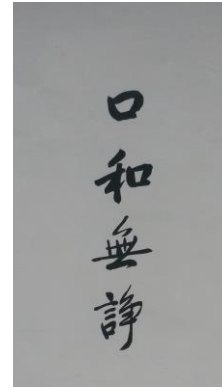 口和無諍